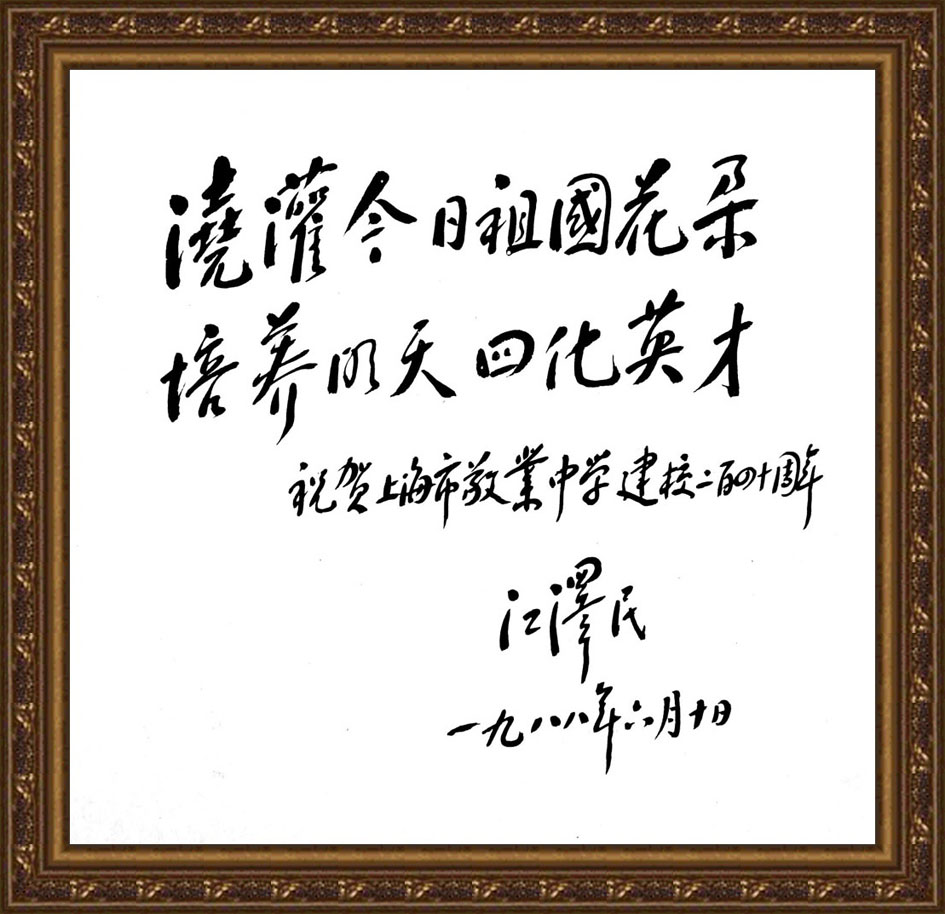 澆灌今日祖國花朵
培养明天四化英才
祝贺上海市敬業中学建校二百四十周年
江澤民
一九八八年六月十日